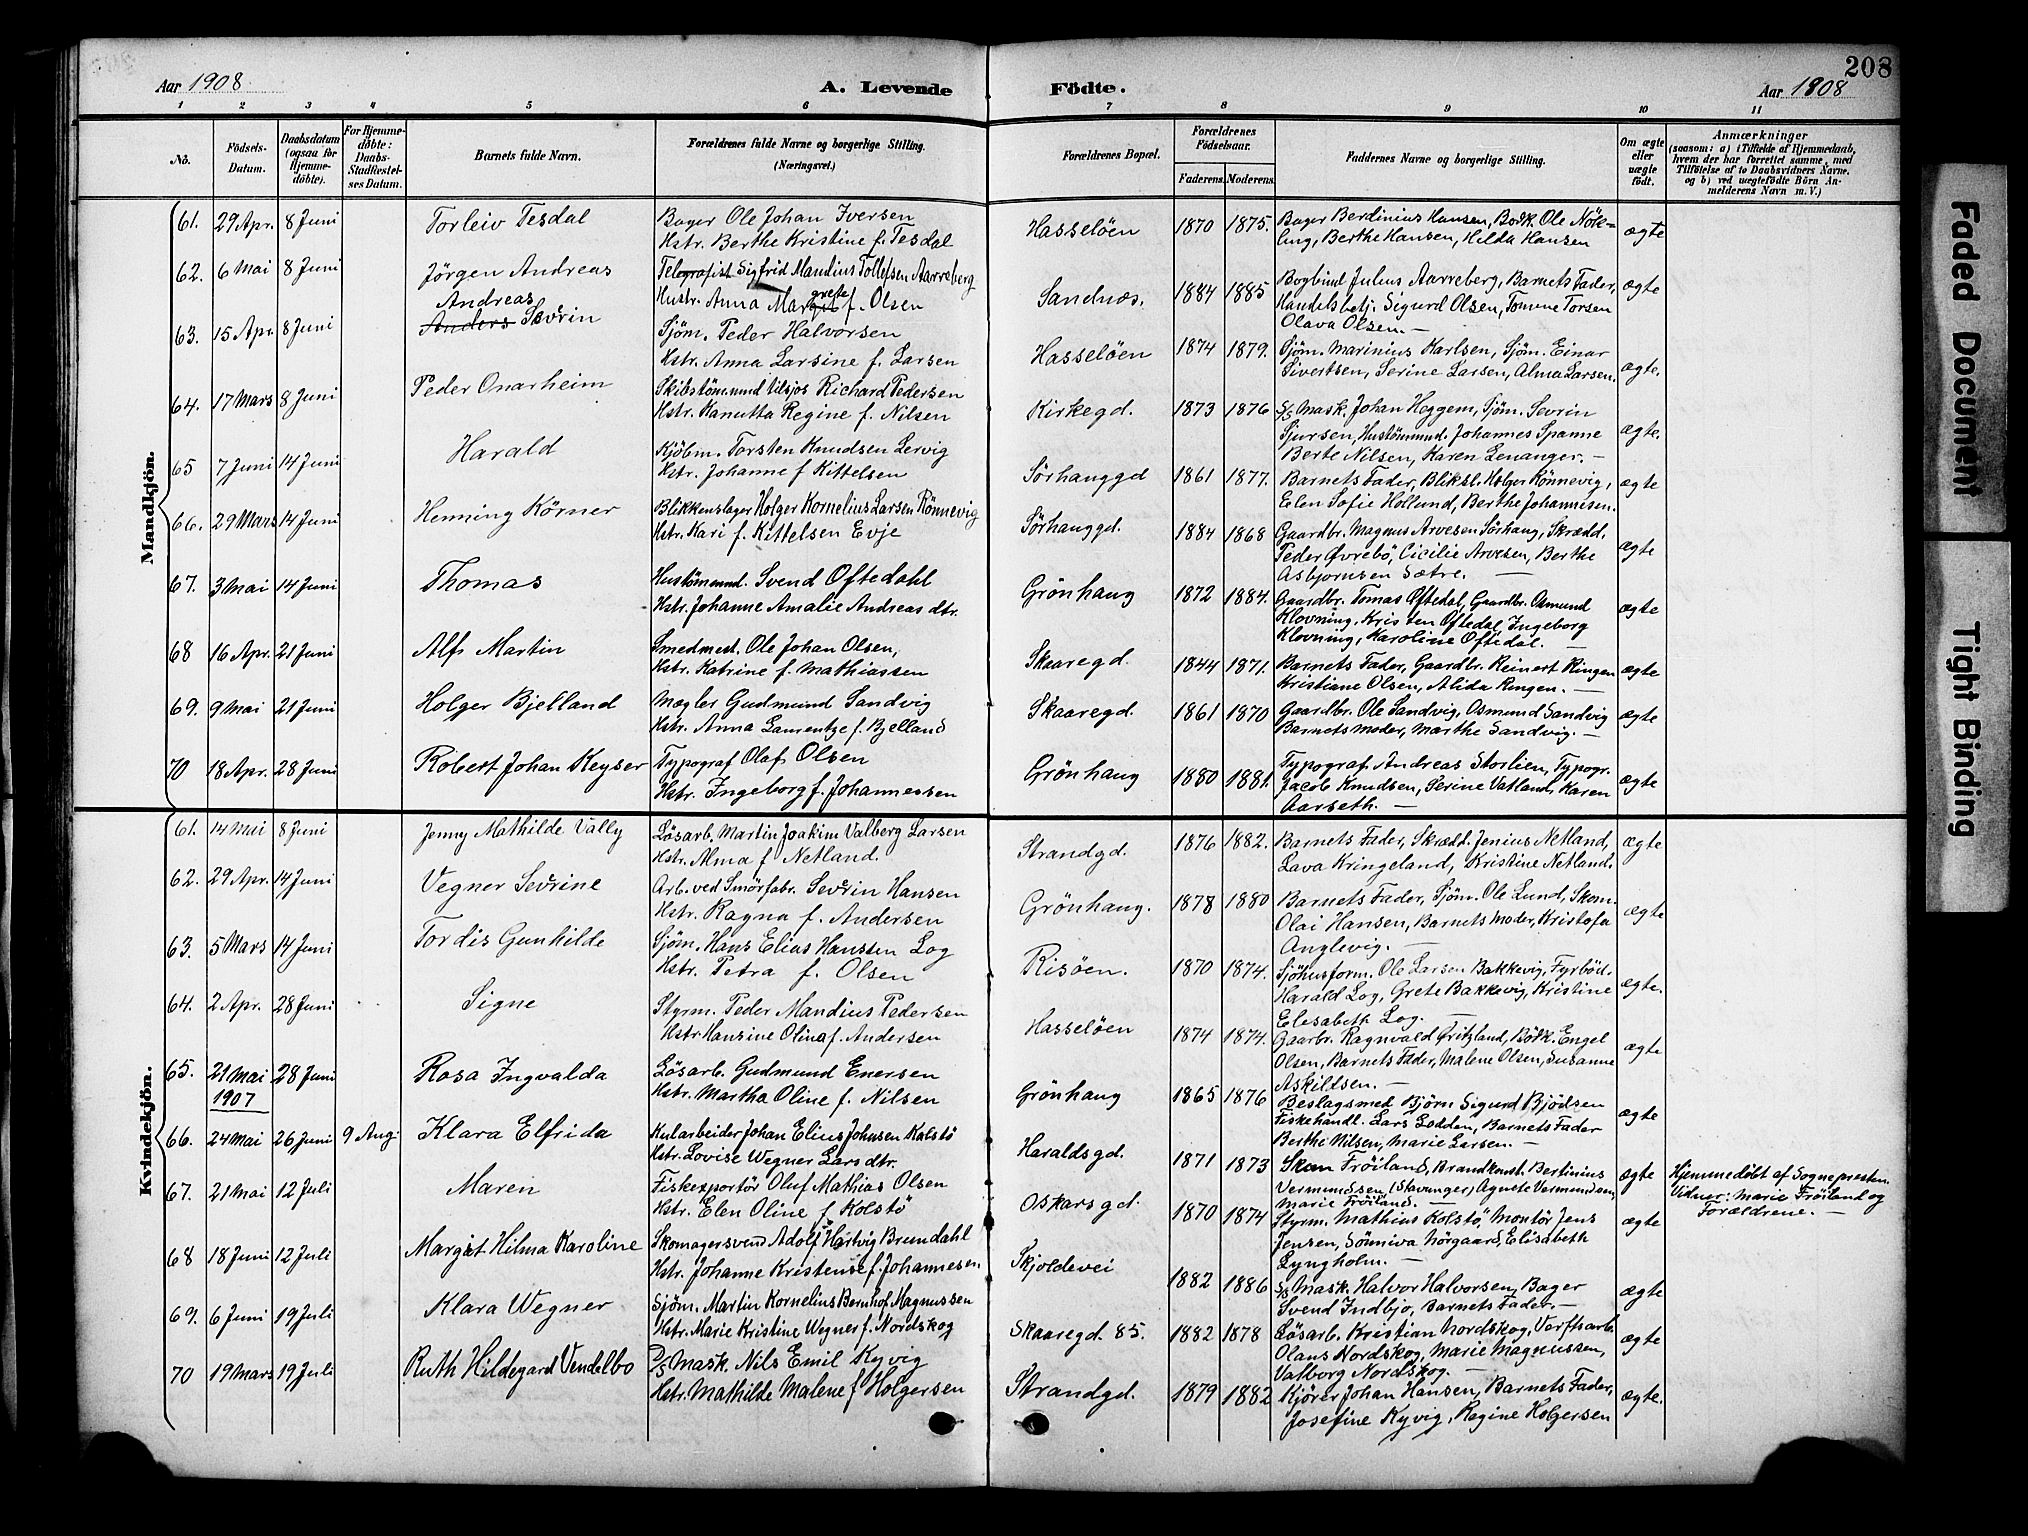 208
Aar 1908
A. Levende
Födte.
Aar 1908
1 2 3 4 5 6 7 8 9 10 11
No.
Födsels-Datum.
Daabsdatum (ogsaa for Hjemmedöbte).
For Hjemmedöbte: Daabs-Stadfestelses Datum.
Barnets fulde Navn.
Forældrenes fulde Navne og borgerlige Stilling.
(Næringsvei.)
Forældrenes Bopæl.
Forældrenes Födselsaar.
Faderens. Moderens.
Faddernes Navne og borgerlige Stilling.
Om ægte eller uægte födt.
Anmærkninger
(saasom: a) i Tilfælde af Hjemmedaab, hvem der har forrettet samme, med Tilföielse af to Daabsvidners Navne, og b) ved uægtefödte Börn Anmelderens Navn m. V.)
Mandkjön.
61. 29 Apr. 8 Juni Torleiv Tesdal Bager Ole Johan Iversen Hstr. Berthe Kristine f. Tesdal Hasselöen 1870 1875. Bager Berdinius Hansen, Bødk. Ole Nökling, Berthe Hansen, Hilda Hansen ægte
62. 6 Mai 8 Juni Jörgen Andreas Telegrafist Sigfrid Mandius Tollefsen Aarreberg Hustr. Anna Margrete f. Olsen Sandnæs. 1884 1885 Bogbind Julius Aarreberg, Barnets Fader, Handelsbetj. Sigurd Olsen, Tomine Torsen Olava Olsen. — ægte
63. 15 Apr. 8 Juni Andreas Anders Sevrin Sjöm. Peder Halvorsen Hstr. Anna Larsine f. Larsen Hasselöen 1874 1879. Sjöm. Marinius Karlsen, Sjöm. Einar Sivertsen, Serine Larsen, Alma Larsen. ægte.
64. 17 Mars 8 Juni Peder Onarheim Skibstömmmd Vilsjos Richard Pedersen Hstr. Kanutta Regine f. Nilsen Kirkegd. 1873 1876 S/S Mask. Johan Heggem, Sjöm. Sevrin Sjursen, Hustömmmd. Johannes Spanne Berte Nilsen, Karen Lenanger. — ægte.
65 7 Juni 14 Juni Harald Kjöbm. Torsten Knudsen Lervig Hstr. Johanne f Kittelsen Sörhauggd 1861 1877. Barnets Fader, Bliksl. Holger Rönnevig, Elen Sofie Hollund, Berthe Johannesen. ægte
66. 29 Mars 14 Juni Henning Körner Blikkenslager Holger Kornelius Larsen Rönnevig Hstr. Kari f. Kittelsen Evje Sörhauggd. 1884 1868 Gaardbr. Magnus Arvesen Sörhaug, Skrædd. Peder Øvrebö, Cicilie Arvesen, Berthe Asbjornsen Sætre. — ægte
67. 3 Mai 14 Juni Thomas Hustömmmd. Svend Oftedahl Hstr. Johanne Amalie Andreas dtr. Grönhaug 1872 1884. Gaardbr. Tomas Oftedal, Gaardbr. Osmund Klovning, Kristen Oftedal, Ingeborg Klovning, Karoline Oftedal. — ægte
68 16 Apr. 21 Juni Alf Martin Smedmest. Ole Johan Olsen, Hstr. Katrine f. Mathiassen Skaaregd. 1844 1871. Barnets Fader, Gaardbr. Reinert Ringen Kristiane Olsen, Alida Ringen. — ægte
69. 9 Mai 21 Juni Holger Bjelland Mægler Gudmund Sandvig Hstr. Anna Laurentze f. Bjelland Skaaregd. 1861 1870 Gaardbr. Ole Sandvig, Osmund Sandvig Barnets Moder, Marthe Sandvig. — ægte
70 18 Apr. 28 Juni Robert Johan Keyser Typograf Olaf Olsen Hstr. Ingeborg f. Johannessen Grönhaug 1880 1881. Typograf Andreas Storlien, Typogr. Jacob Knudsen, Serine Vatland, Karen Aarseth. — ægte
Kvindekjön.
61. 14 Mai 8 Juni Jenny Mathilde Vally Lösarb. Martin Joakim Valberg Larsen Hstr. Alma f Netland. Strandgd. 1876 1882. Barnets Fader, Skrædd. Jenius Netland, Lava Kringeland, Kristine Netland. ægte
62. 29 Apr. 14 Juni Vegner Sevrine Arb. ved Smörfabr. Sevrin Hansen Hstr. Ragna f. Andersen Grönhaug. 1878 1880 Barnets Fader, Sjöm. Ole Lund, Skom. Olai Hansen, Barnets Moder, Kristofa Anglevig. — ægte
63. 5 Mars 14 Juni Tordis Gunhilde Sjöm. Hans Elias Hansten Log Hstr. Petra f. Olsen Risöen. 1870 1874. Sjöhusform. Ole Larsen Bakkevig, Fyrbød. Harald Log, Grete Bakkevig, Kristine Elesabeth Log. — ægte.
64. 2 Apr. 28 Juni Signe Styrm. Peder Mandius Pedersen Hstr Hansine Olina f. Andersen Hasselöen 1874 1874. Gaarbr. Ragnvald Fritzland, Bödk. Engel Olsen, Barnets Fader, Malene Olsen, Susanne Askildsen. — ægte
65. 21 Mai 1907 28 Juni Rosa Ingvalda Lösarb. Gudmund Enersen Hstr. Martha Oline f. Nilsen Grönhaug 1865 1876 Beslagsmed Björn Sigurd Bjödsen Fiskehandl. Lars Lodden, Barnets Fader Berthe Nilsen, Marie Larsen. — ægte
66. 24 Mai 26 Juni 9 Aug. Klara Elfrida Kularbeider Johan Elius Johnsen Kalstö Hstr. Lovise Wegner Lars dtr. Haraldsgd. 1871 1873 Skom Fröiland, Brandkonst. Bertinius Vermundsen (Stavanger) Agnete Vermundsen, Marie Fröiland. ægte Hjemmedøbt af Sognepresten. Vidner: Marie Fröiland og Forældrene. —
67. 21 Mai 12 Juli Maren Fiskexportör Oluf Mathias Olsen Hstr. Elen Oline f. Kolstö Oskarsgd. 1870 1874 Styrm. Mathias Kolstö, Montör Jens Jensen, Sönniva Nörgaard, Elisabeth Lyngholm. — ægte
68 18 Juni 12 Juli Margit Hilma Karoline Skomagersvend Adolf Hartvig Brundahl Hstr. Johanne Kristense f. Johannesen Skjoldevei 1882 1886 S/S Mask. Halvor Halvorsen, Bager Svend Indbjo, Barnets Fader. — ægte
69. 6 Juni 19 Juli Klara Wegner Sjöm. Martin Kornelius Bernhof Magnussen Hstr. Marie Kristine Wegner f. Nordskog Skaaregd. 85. 1882 1878 Lösarb. Kristian Nordskog, Verftsarb. Olaus Nordskog, Marie Magnussen, Valborg Nordskog. — ægte
70 19 Mars 19 Juli Ruth Hildegard Vendelbo D/S Mask. Nils Emil Kyvig Hstr. Mathilde Malene f Holgersen Strandgd. 1879 1882 Kjörer Johan Hansen, Barnets Fader, Josefine Kyvig, Regine Holgersen ægte.
Faded Document
Tight Binding